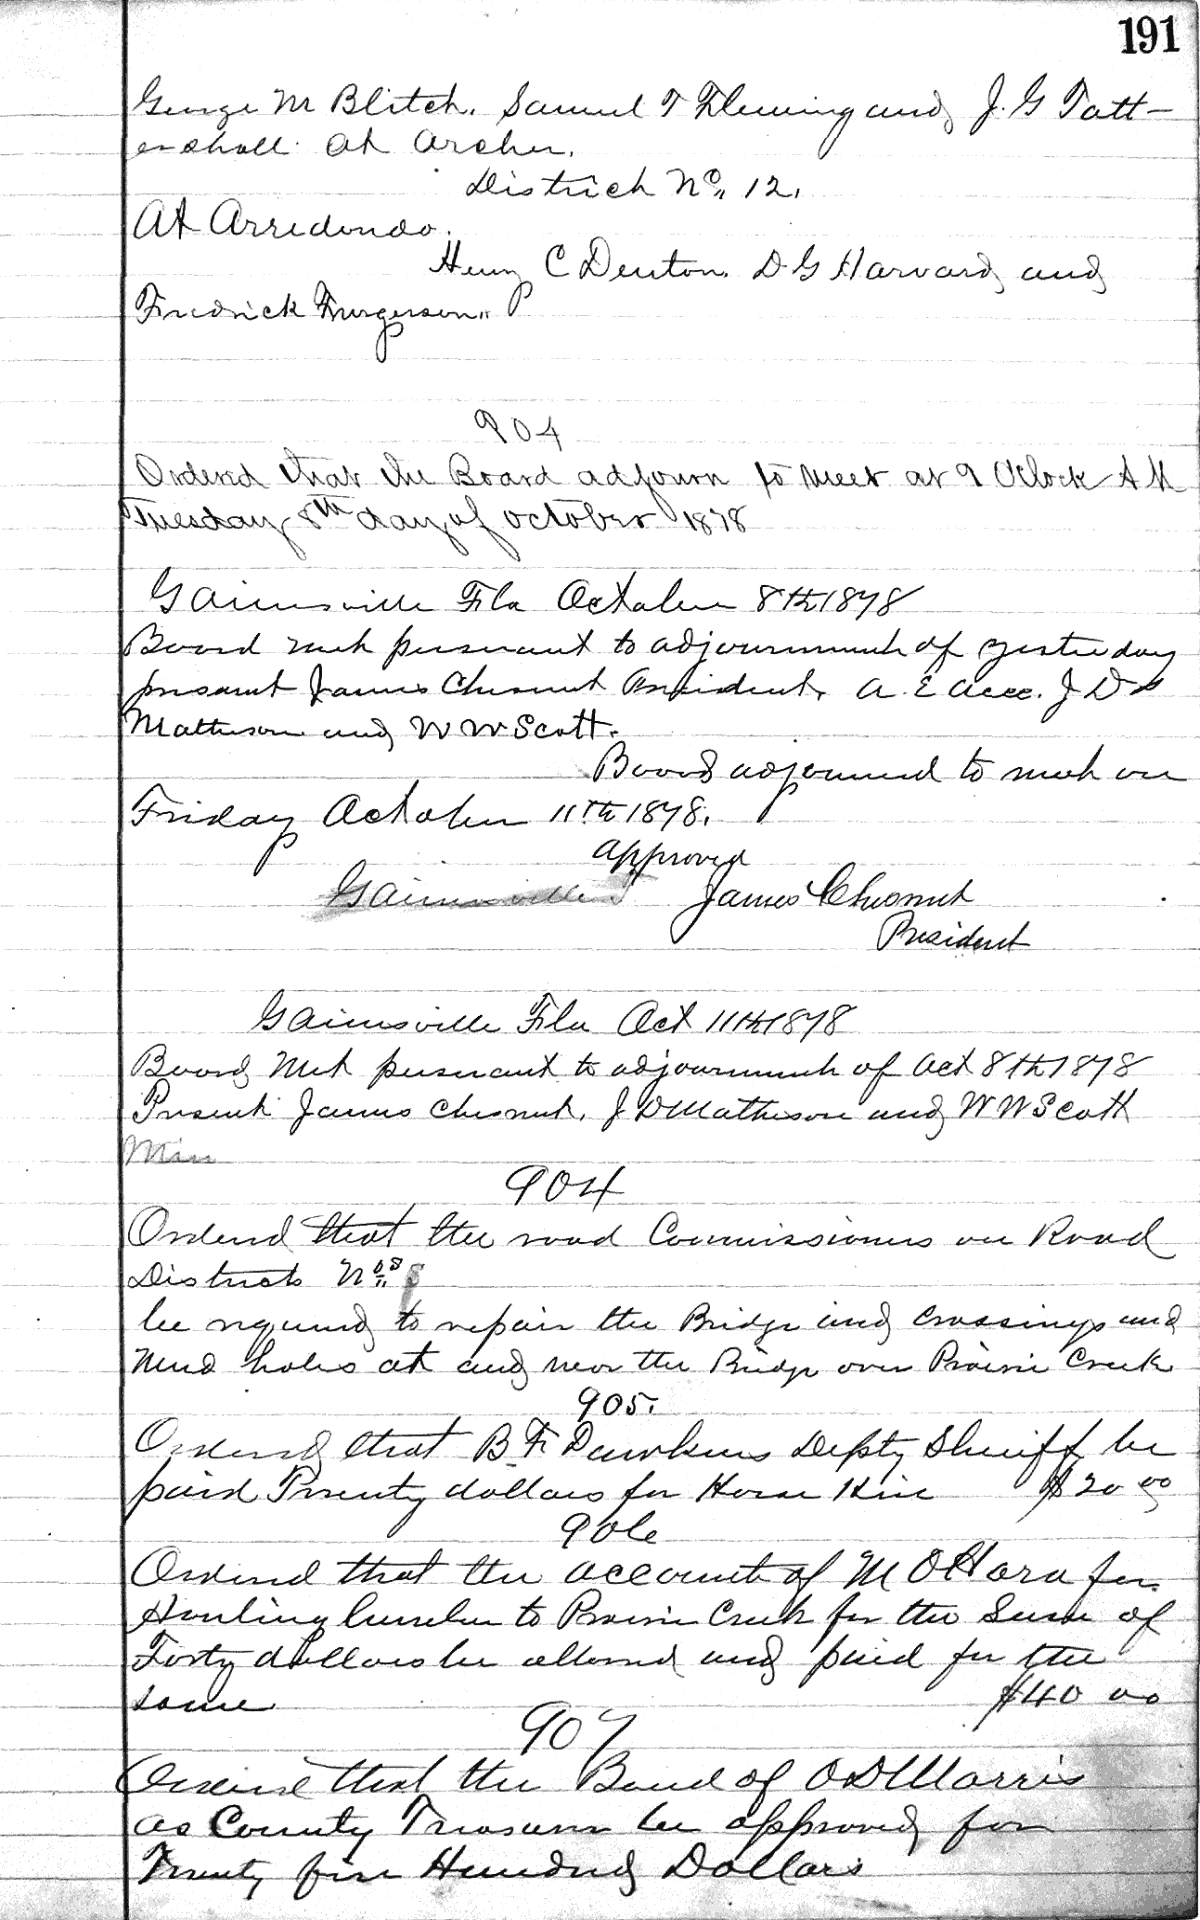 191
George M Blitch. Samuel T Fleming and J. G Tatt-
ershall. at Archer.
District No. 12.
At Arredondo.
Henry C Denton. D G Harvard and
Fredrick Furgerson.
904
Ordered that the Board adjourn to meet at 9 O'Clock A M
Tuesday 8th day of October 1878
Gainesville Fla October 8th 1878
Board met pursuant to adjournment of yesterday
present James Chesnut President, A. E J D
Matheson and W W Scott.
Board adjourned to meet on
Friday October 11th 1878.
approved
Gainesville James Chesnut
President
Gainesville Fla Oct 11th 1878
Board Met pursuant to adjournment of Oct 8th 1878
Present James Chesnut, J D Matheson and W W Scott
Min
904
Ordered that the road Commissioners on Road
Districts Nos
be required to repair the Bridge and crossings and
Mud holes at and near the Bridge over Prairie Creek
905.
Ordered that B. F. Dawkins Depty Sheriff be
paid Twenty dollars for Horse Hire $20 00
906
Ordered that the account of M O Hara for
Hauling lumber to Prairie Creek for the Sum of
Forty dollars be allowed and paid for the
same $40 00
907
Ordered that the Bond of O D Morris
as County Treasurer be approved for
Twenty five Hundred Dollars